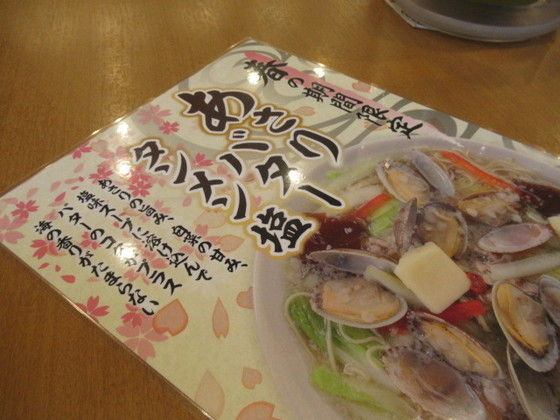 春の期間限定
あさり
バター
タンメン
塩
あさりの旨み、白菜の甘み、
塩味スープに溶け込んで
バターのコクがプラス
海の香りがたまらない